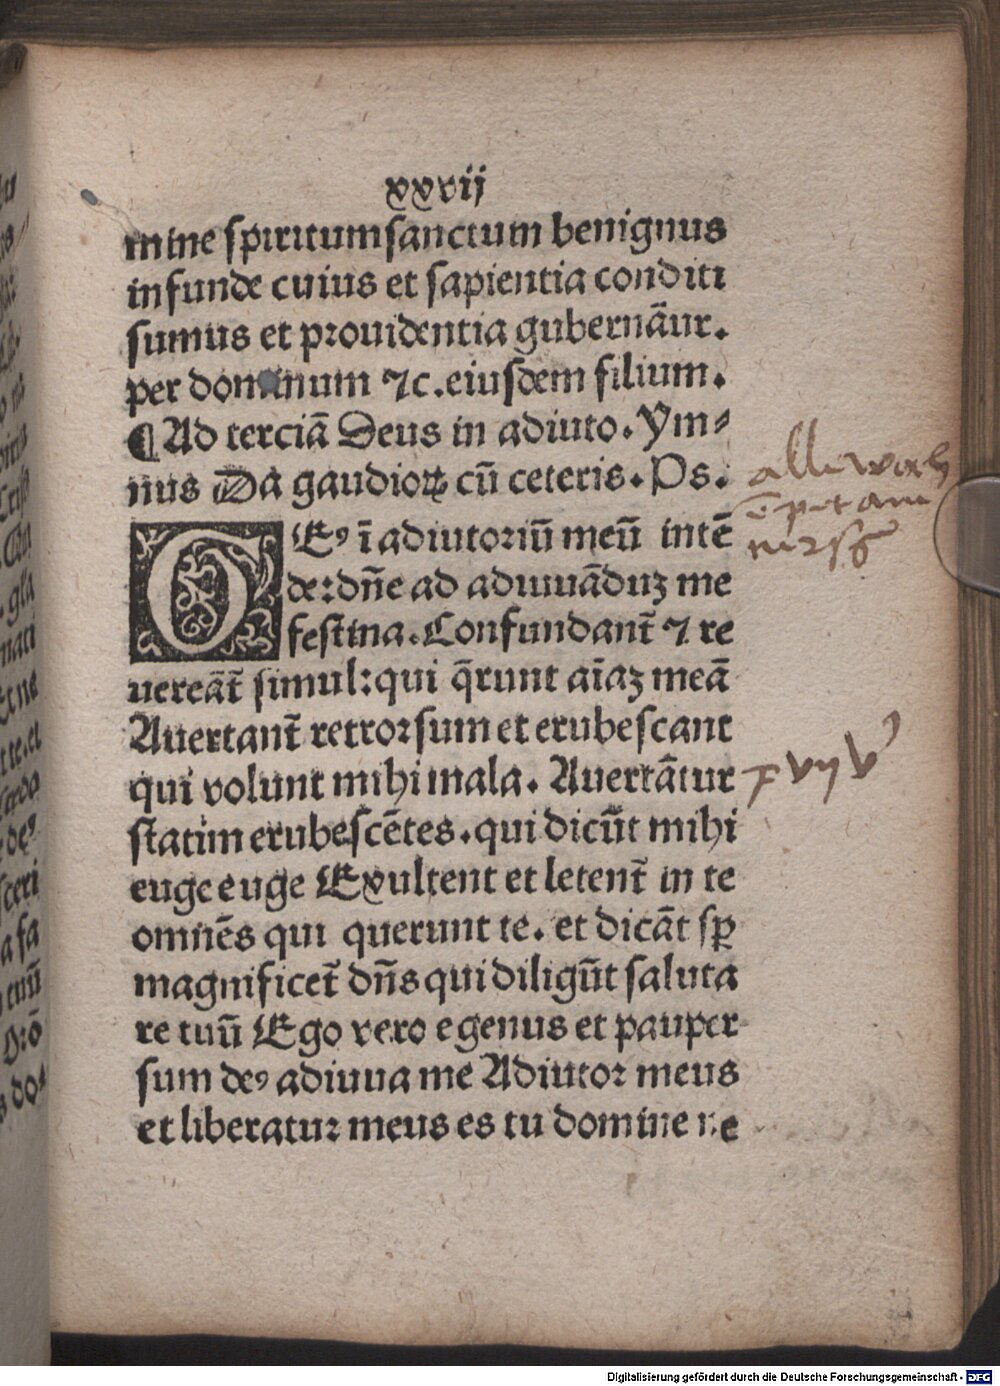 xxvij
mine spiritum sanctum benignus
infunde cuius et sapientia conditi
sumus et prouidentia gubernãur.
per dominum ⁊c. eiusdem filium.
¶ Ad terciã Deus in adiuto. Ym⸗
nus Da gaudioꝝ cũ ceteris. Ps.
DEꝰ ĩ adiutoriũ meũ intẽ
de: dñe ad adiuuãduʒ me
festina. Confundant̃ ⁊ re
uereãt̃ simul: qui q̃runt aĩaʒ meã
Auertant̃ retrorsum et erubescant
qui volunt mihi mala. Auertãtur
statim erubescẽtes. qui dicũt mihi
euge euge Exultent et letent̃ in te
omnẽs qui querunt te. et dicãt sꝑ
magnificet̃ dñs qui diligũt saluta
re tuũ Ego vero egenus et pauper
sum deꝰ adiuua me Adiutor meus
et liberatur meus es tu domine ne
Digitalisierung gefördert durch die Deutsche Forschungsgemeinschaft - DFG